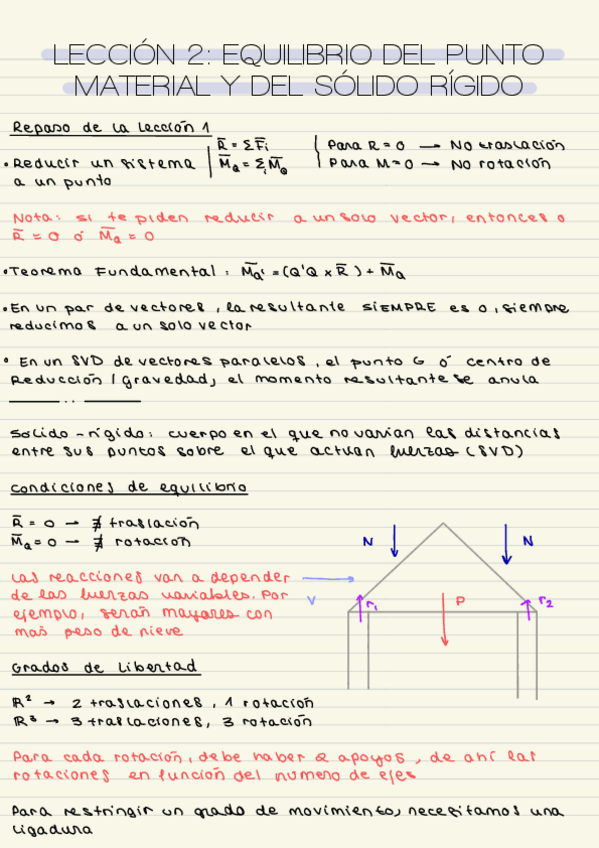 LECCIÓN 2: EQUILIBRIO DEL PUNTO
MATERIAL Y DEL SÓLIDO RÍGIDO
Repaso de la Lección 1
• Reducir un sistema
a un punto
R̄ = ΣF̄i
M̄Q = Σi M̄Q
Para R = 0 → No traslación
Para M = 0 → No rotación
Nota: si te piden reducir a un solo vector, entonces o
R̄ = 0 ó M̄Q = 0
• Teorema Fundamental : M̄Q' = (Q'Q x R̄) + M̄Q
• En un par de vectores, la resultante SIEMPRE es 0, siempre
reducimos a un solo vector
• En un SVD de vectores paralelos, el punto G ó centro de
Reducción / gravedad, el momento resultante se anula
Sólido - rígido: cuerpo en el que no varían las distancias
entre sus puntos sobre el que actúan fuerzas (SVD)
Condiciones de equilibrio
R̄ = 0 → ∄ traslación
M̄Q = 0 → ∄ rotación
Las reacciones van a depender
de las fuerzas variables. Por
ejemplo, serán mayores con
mas peso de nieve
N
N
V
r1
P
r2
Grados de libertad
R² → 2 traslaciones, 1 rotación
R³ → 3 traslaciones, 3 rotación
Para cada rotación, debe haber 2 apoyos, de ahí las
rotaciones en función del numero de ejes
Para restringir un grado de movimiento, necesitamos una
ligadura